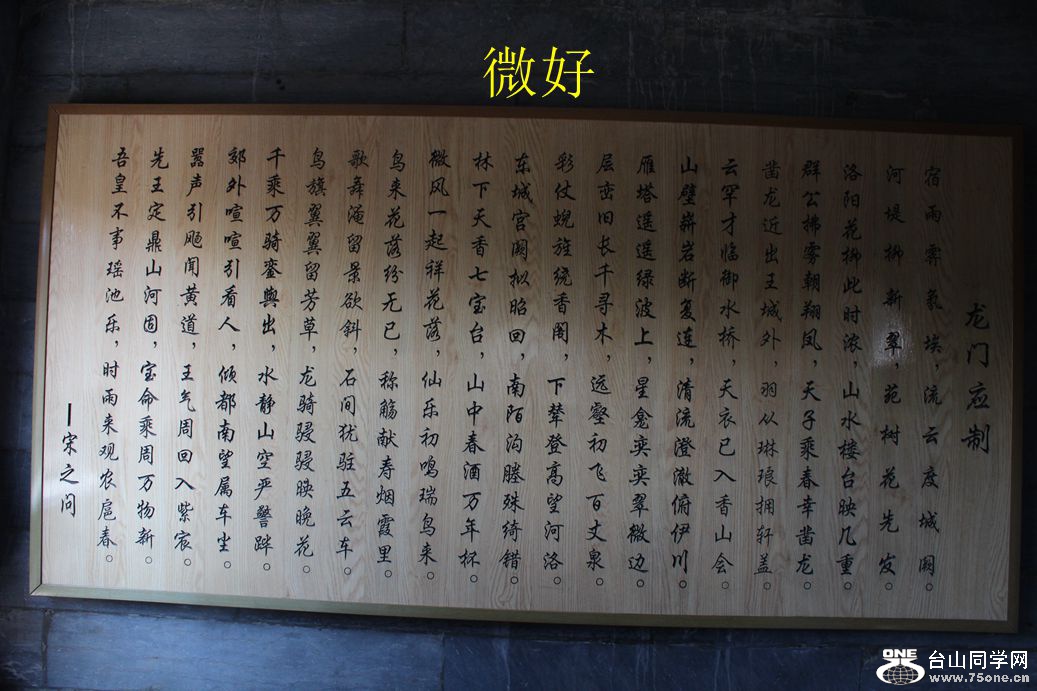 微好
龙门应制
宿雨霁氛埃，流云度城阙。
河堤柳新翠，苑树花先发。
洛阳花柳此时浓，山水楼台映几重。
群公拂雾朝翔凤，天子乘春幸凿龙。
凿龙近出王城外，羽从琳琅拥轩盖。
云罕才临御水桥，天衣已入香山会。
山壁崭岩断复连，清流澄澈俯伊川。
雁塔遥遥绿波上，星龛奕奕翠微边。
层峦旧长千寻木，远壑初飞百丈泉。
彩仗蜺旌绕香阁，下辇登高望河洛。
东城宫阙拟昭回，南陌沟塍殊绮错。
林下天香七宝台，山中春酒万年杯。
微风一起祥花落，仙乐初鸣瑞鸟来。
鸟来花落纷无已，称觞献寿烟霞里。
歌舞淹留景欲斜，石间犹驻五云车。
鸟旗翼翼留芳草，龙骑骎骎映晚花。
千乘万骑銮舆出，水静山空严警跸。
郊外喧喧引看人，倾都南望属车尘。
嚣声引飏闻黄道，王气周回入紫宸。
先王定鼎山河固，宝命乘周万物新。
吾皇不事瑶池乐，时雨来观农扈春。
—宋之问
ONE 台山同学网
www.75one.cn